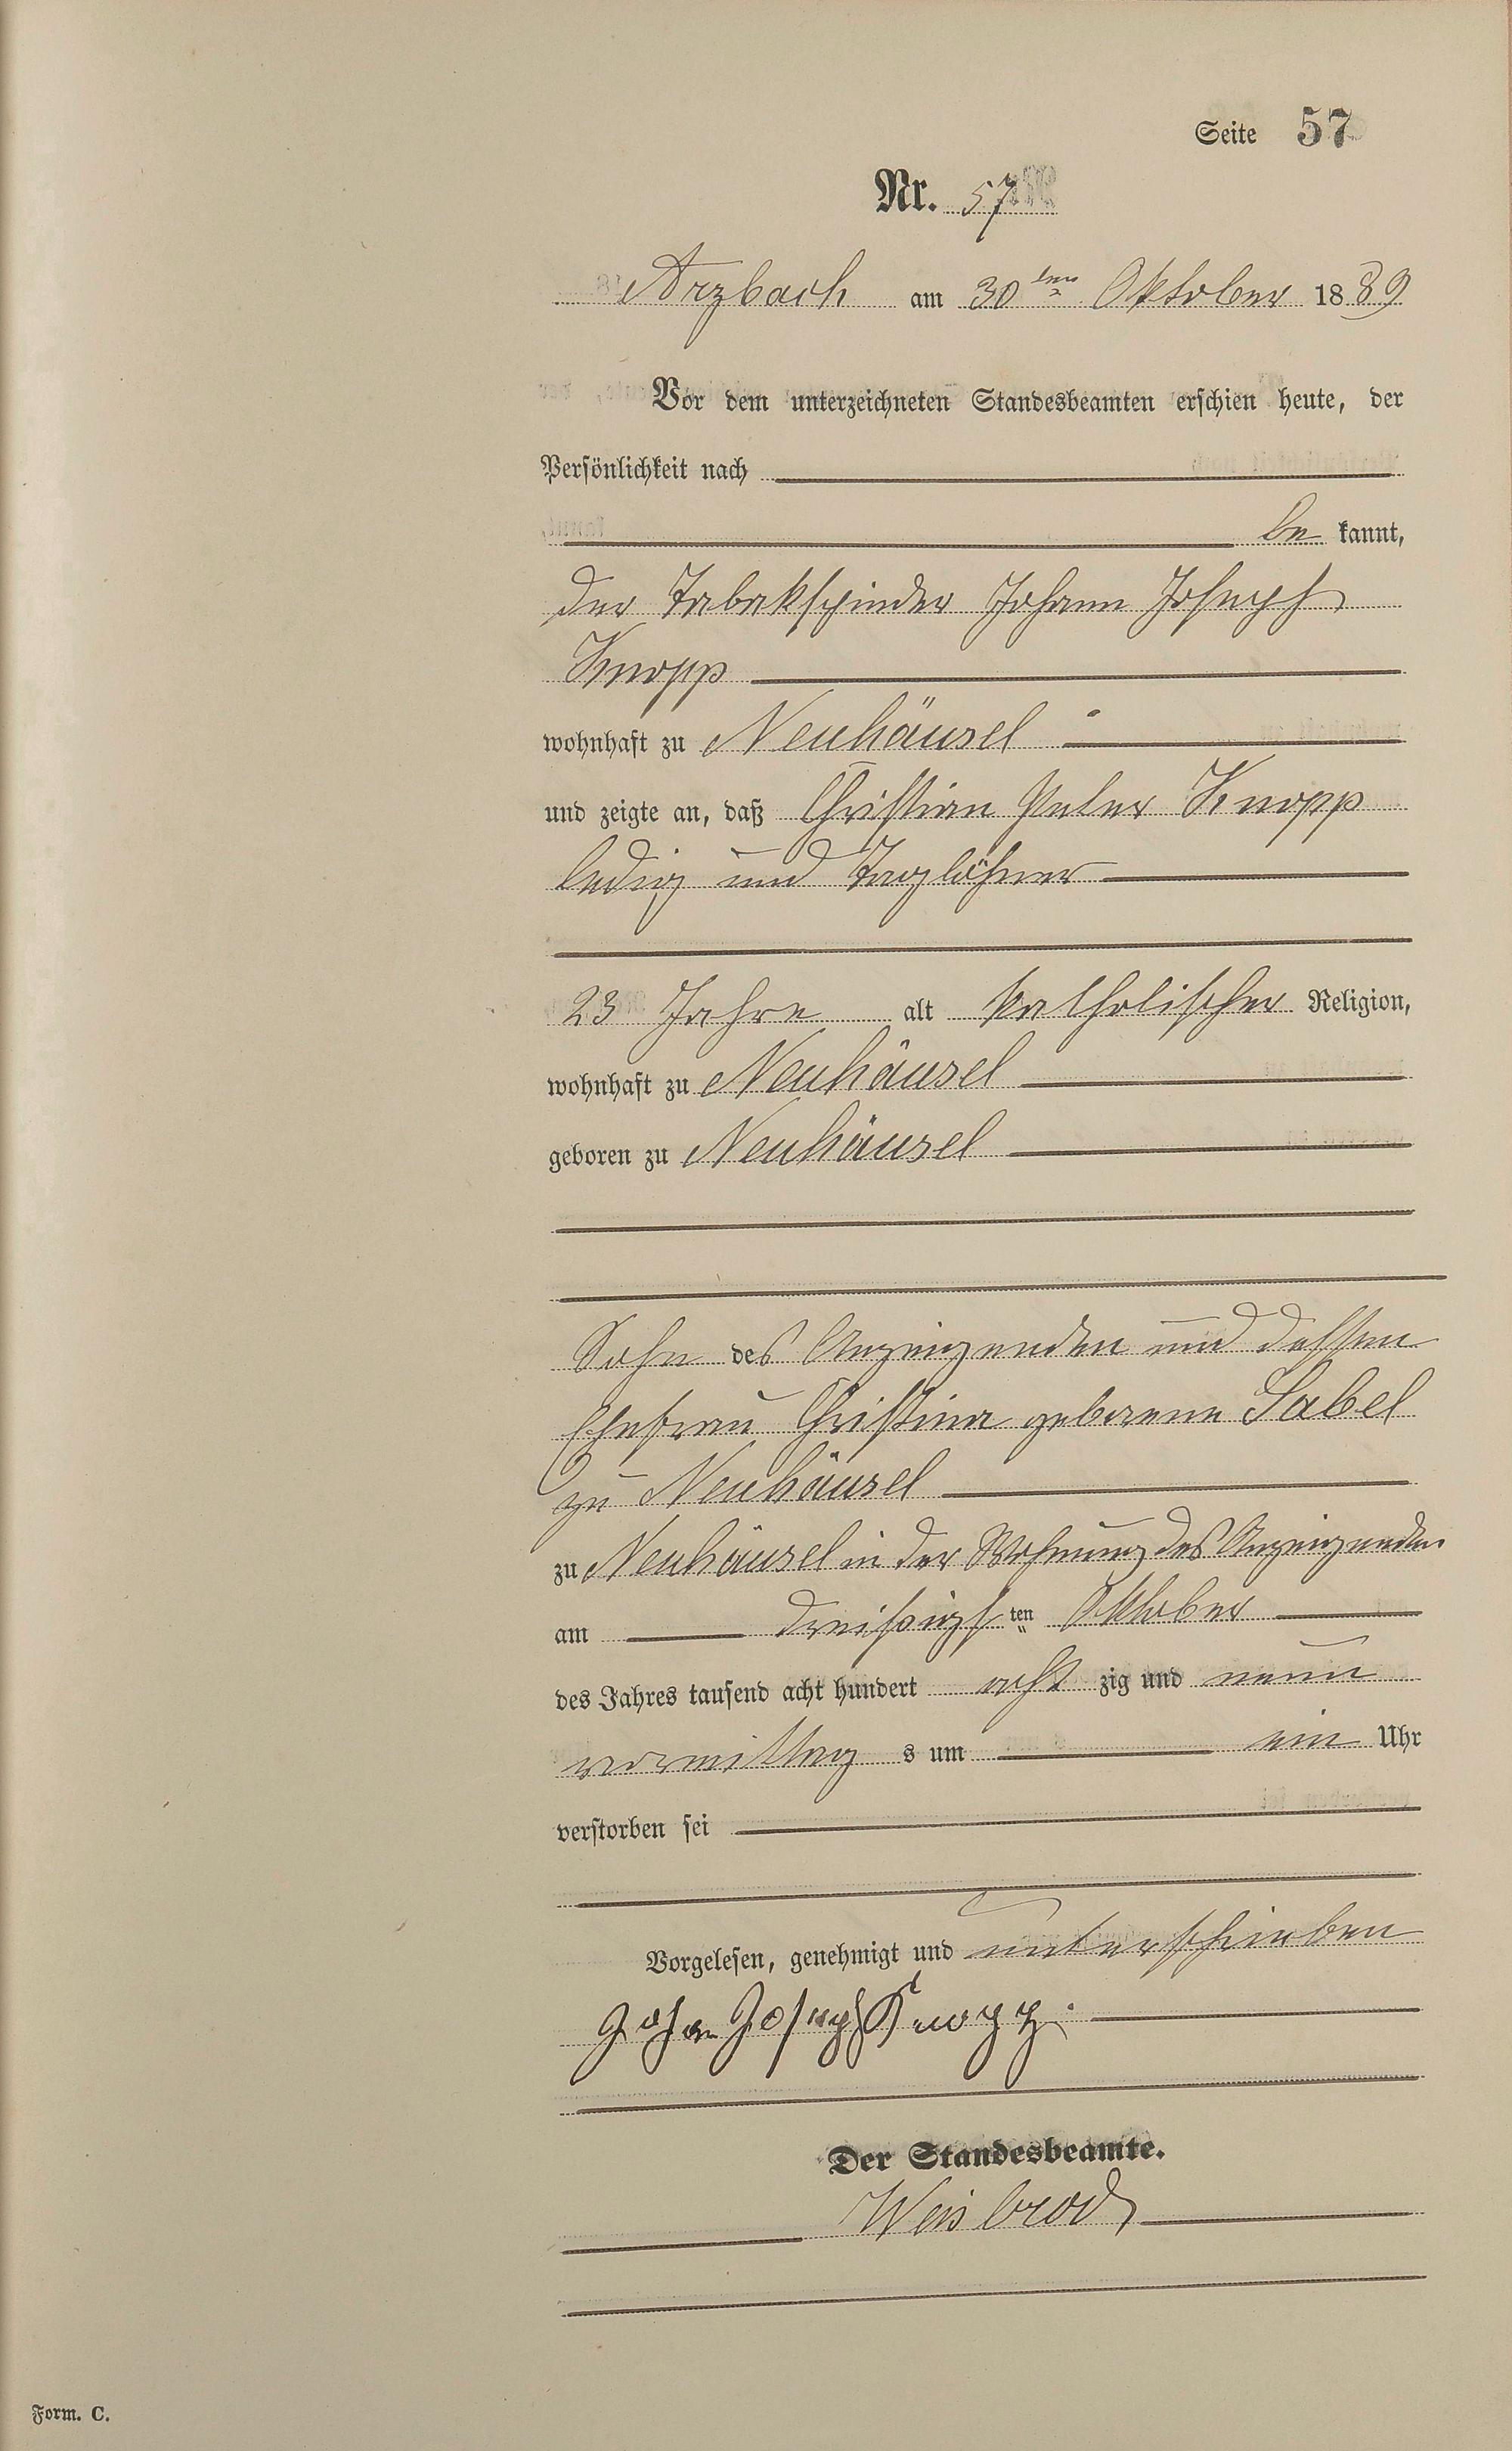 Seite 57
Nr. 57
Arzbach am 30ten Oktober 1889
Vor dem unterzeichneten Standesbeamten erschien heute, der
Persönlichkeit nach
be kannt,
der Tabakspinder Johann Joseph
Knopp
wohnhaft zu Neuhäusel
und zeigte an, daß Christian Peter Knopp
ledig und Taglöhner
23 Jahre alt katholischer Religion,
wohnhaft zu Neuhäusel
geboren zu Neuhäusel
Sohn des Anzeigenden und dessen
Ehefrau Christina geborene Sabel
zu Neuhäusel
zu Neuhäusel in der Wohnung des Anzeigenden
am dreißigsten Oktober
des Jahres tausend acht hundert acht zig und neun
vormittag s um ein Uhr
verstorben sei
Vorgelesen, genehmigt und unterschrieben
Johan Joseph Knopp.
Der Standesbeamte.
Weisbrod
Form. C.